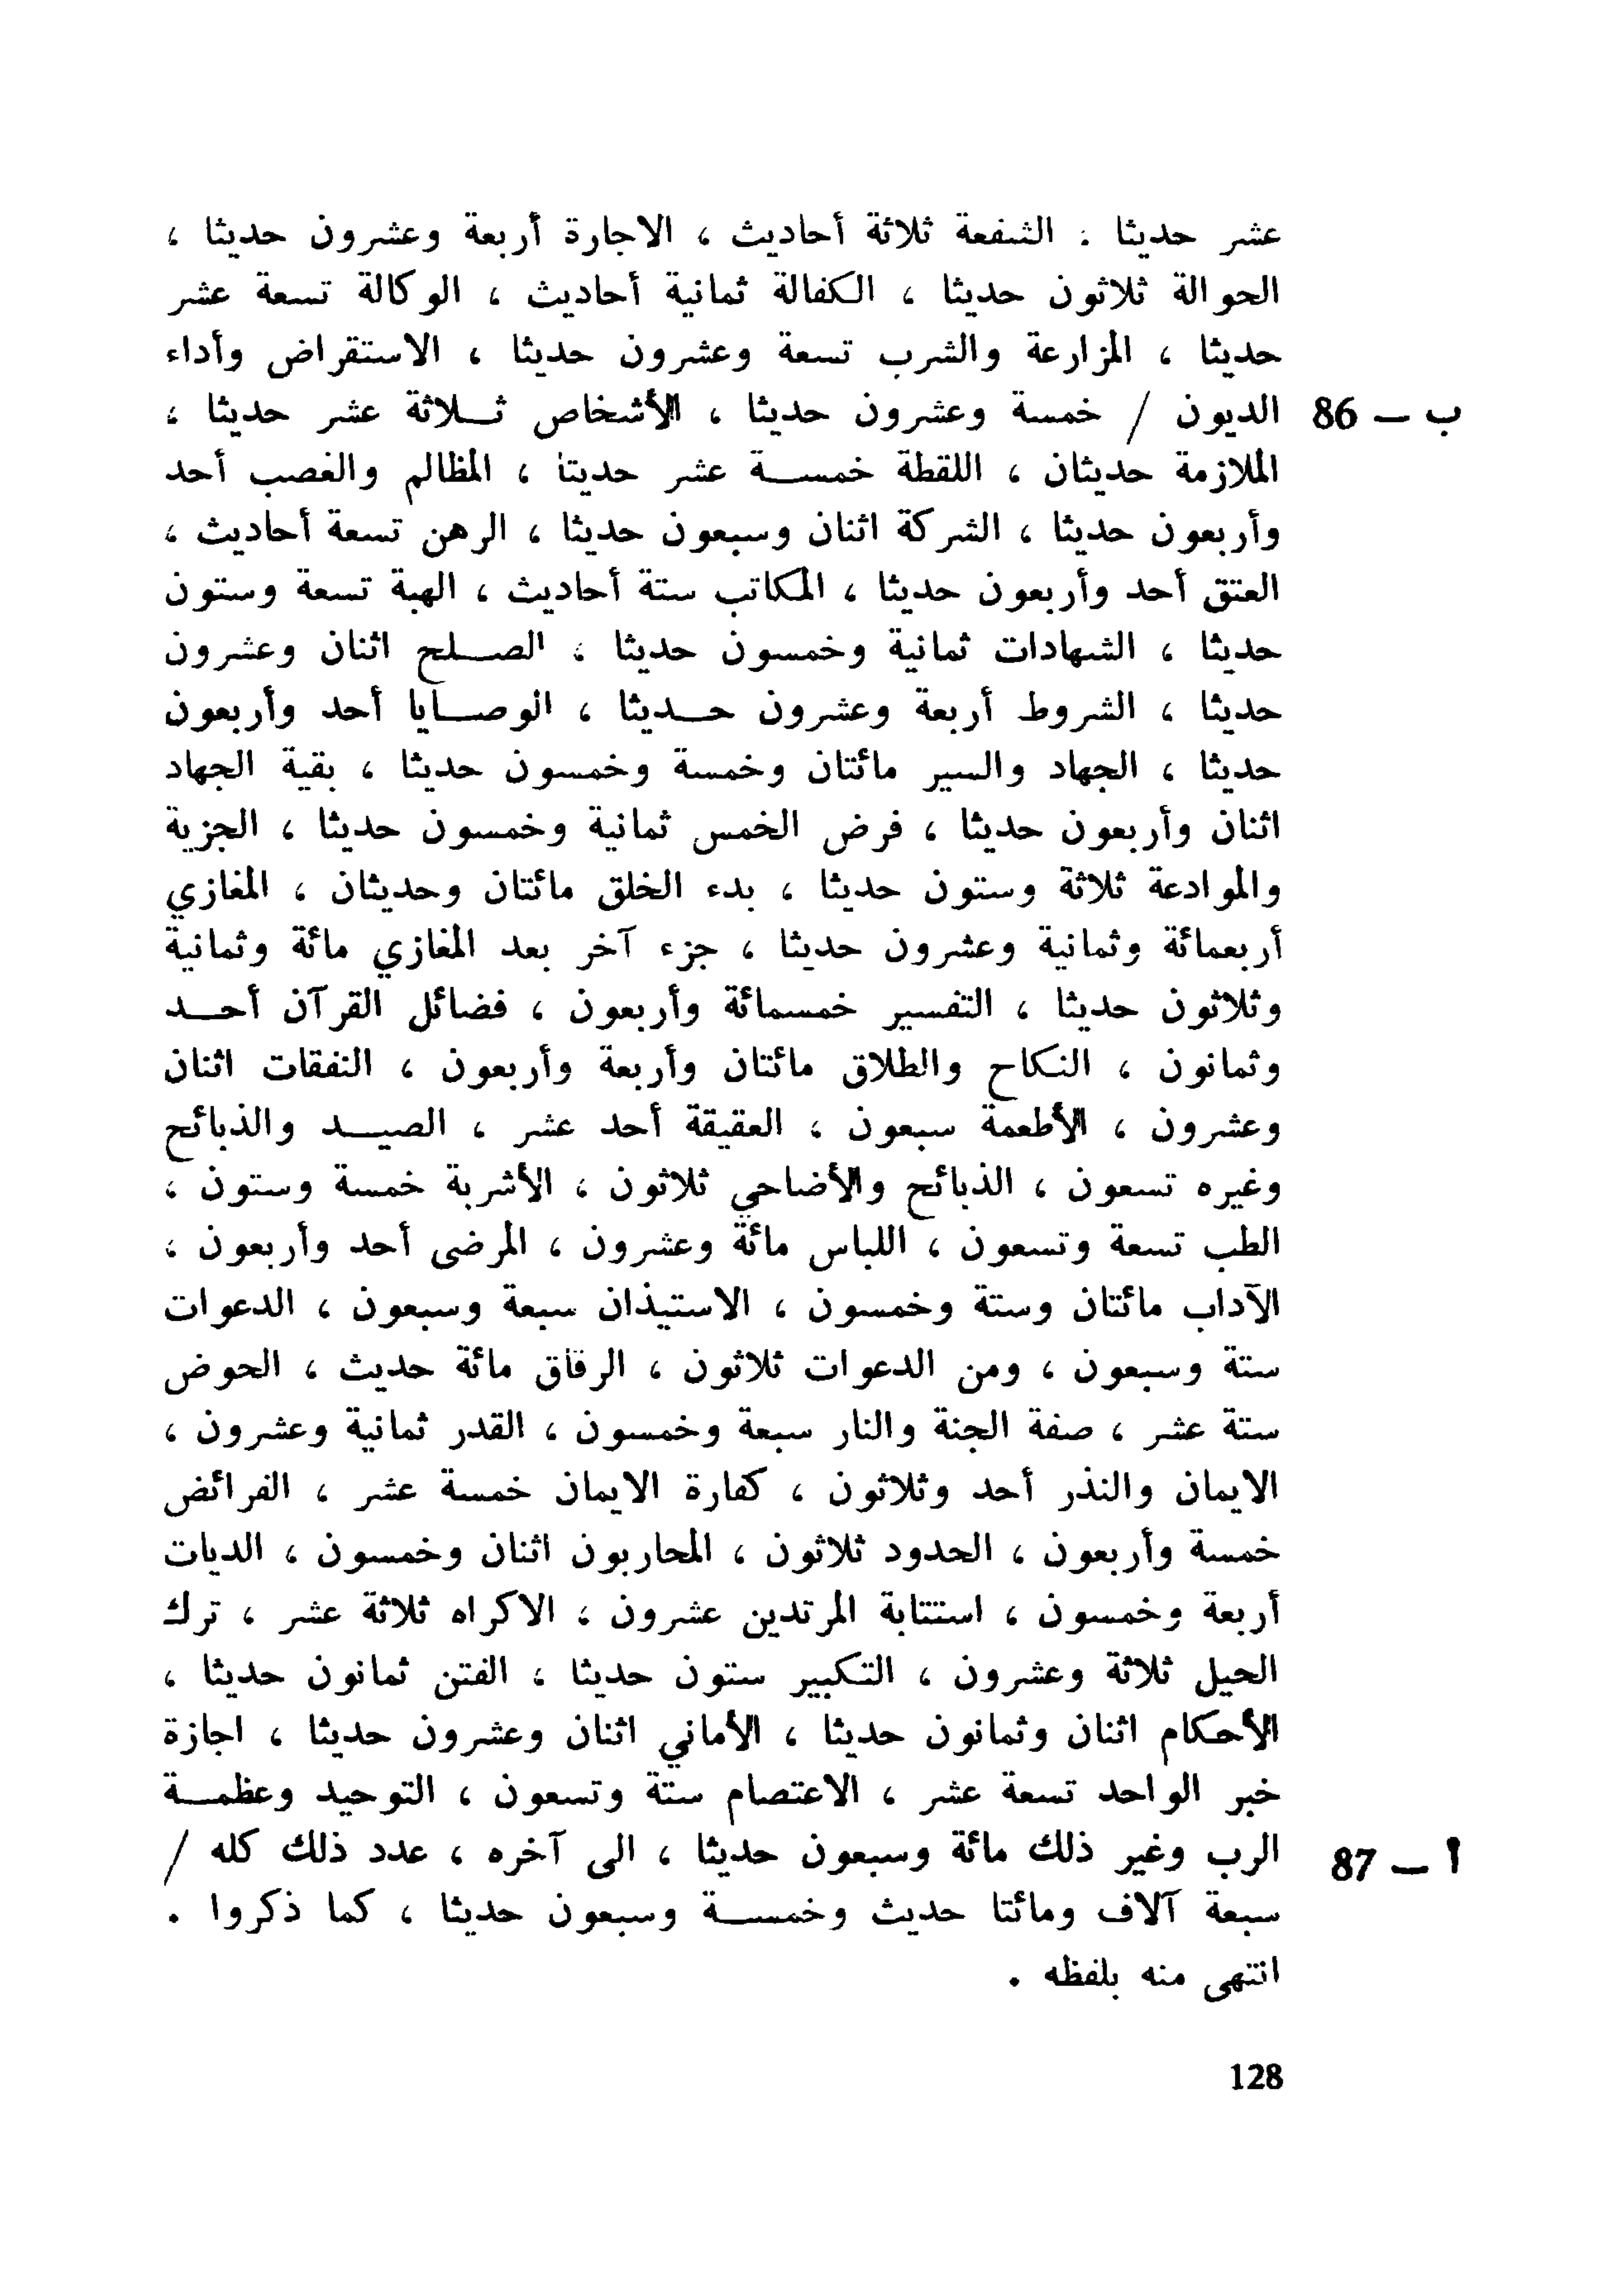 عشر حديثا ، الشفعة ثلاثة أحاديث ، الاجارة أربعة وعشرون حديثا ،
الحوالة ثلاثون حديثا ، الكفالة ثمانية أحاديث ، الوكالة تسعة عشر
حديثا ، المزارعة والشرب تسعة وعشرون حديثا ، الاستقراض وأداء
ب — 86 الديون / خمسة وعشرون حديثا ، الأشخاص ثـلاثة عشر حديثا ،
الملازمة حديثان ، اللقطة خمسـة عشر حديثا ، المظالم والغصب أحد
وأربعون حديثا ، الشركة اثنان وسبعون حديثا ، الرهن تسعة أحاديث ،
العتق أحد وأربعون حديثا ، المكاتب ستة أحاديث ، الهبة تسعة وستون
حديثا ، الشهادات ثمانية وخمسون حديثا ، الصـلح اثنان وعشرون
حديثا ، الشروط أربعة وعشرون حـديثا ، الوصـايا أحد وأربعون
حديثا ، الجهاد والسير مائتان وخمسة وخمسون حديثا ، بقية الجهاد
اثنان وأربعون حديثا ، فرض الخمس ثمانية وخمسون حديثا ، الجزية
والموادعة ثلاثة وستون حديثا ، بدء الخلق مائتان وحديثان ، المغازي
أربعمائة وثمانية وعشرون حديثا ، جزء آخر بعد المغازي مائة وثمانية
وثلاثون حديثا ، التفسير خمسمائة وأربعون ، فضائل القرآن أحـد
وثمانون ، النكاح والطلاق مائتان وأربعة وأربعون ، النفقات اثنان
وعشرون ، الأطعمة سبعون ، العقيقة أحد عشر ، الصيـد والذبائح
وغيره تسعون ، الذبائح والأضاحي ثلاثون ، الأشربة خمسة وستون ،
الطب تسعة وتسعون ، اللباس مائة وعشرون ، المرضى أحد وأربعون ،
الآداب مائتان وستة وخمسون ، الاستيذان سبعة وسبعون ، الدعوات
ستة وسبعون ، ومن الدعوات ثلاثون ، الرقاق مائة حديث ، الحوض
ستة عشر ، صفة الجنة والنار سبعة وخمسون ، القدر ثمانية وعشرون ،
الايمان والنذر أحد وثلاثون ، كفارة الايمان خمسة عشر ، الفرائض
خمسة وأربعون ، الحدود ثلاثون ، المحاربون اثنان وخمسون ، الديات
أربعة وخمسون ، استتابة المرتدين عشرون ، الاكراه ثلاثة عشر ، ترك
الحيل ثلاثة وعشرون ، التكبير ستون حديثا ، الفتن ثمانون حديثا ،
الأحكام اثنان وثمانون حديثا ، الأماني اثنان وعشرون حديثا ، اجازة
خبر الواحد تسعة عشر ، الاعتصام ستة وتسعون ، التوحيد وعظمـة
أ — 87 الرب وغير ذلك مائة وسبعون حديثا ، الى آخره ، عدد ذلك كله /
سبعة آلاف ومائتا حديث وخمسـة وسبعون حديثا ، كما ذكروا .
انتهى منه بلفظه .
128